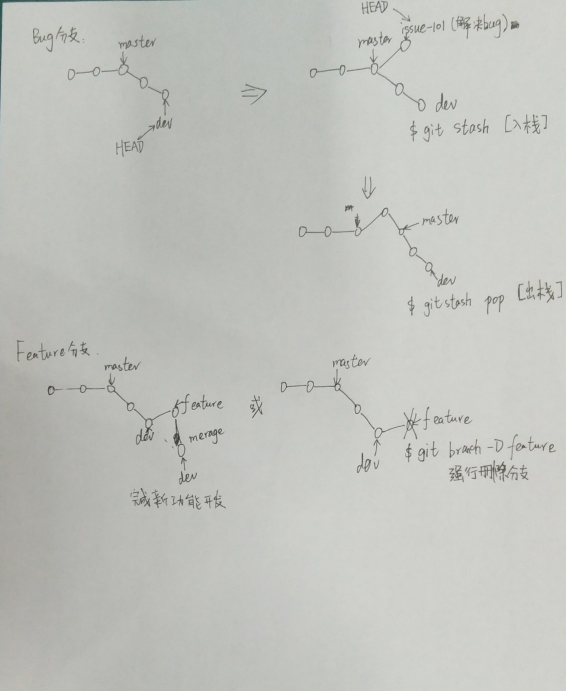 Bug分支.
master
dev
HEAD
HEAD
issue-101 (解决bug)
master
dev
$ git stash [入栈]
master
dev
$ git stash pop [出栈]
Feature分支.
master
feature
dev
merage
dev
完成新功能开发
或
master
feature
dev
$ git branch -D feature
强行删除分支